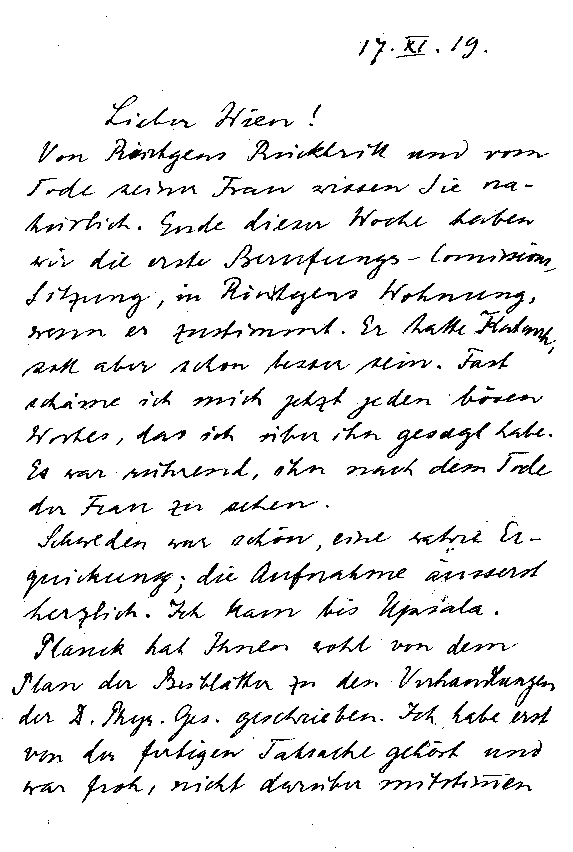 17. XI. 19.
Lieber Wien!
Von Röntgens Rücktritt und vom
Tode seiner Frau wissen Sie na-
türlich. Ende dieser Woche haben
wir die erste Berufungs-Comission,
Sitzung, in Röntgens Wohnung,
wenn er zustimmt. Er hatte
soll aber schon besser sein. Fast
schäme ich mich jetzt jeden bösen
Wortes, das ich über ihn gesagt habe.
Es war rührend, ihn nach dem Tode
der Frau zu sehen.
Schweden war schön, eine wahre Er-
quickung; die Aufnahme äusserst
herzlich. Ich kam bis Upsala.
Planck hat Ihnen wohl von dem
Plan der Beiblätter zu den Verhandlungen
der D. Phys. Ges. geschrieben. Ich habe erst
von der fertigen Tatsache gehört und
war froh, nicht darüber mitstimmen